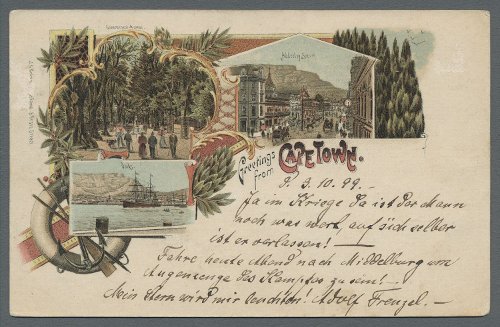 Government Avenue
Adderley Street
Docks
Greetings
from
CAPETOWN.
9. 3. 10. 99. -
Ja im Kriege da ist der Mann
noch was wert, auf sich selber
ist er verlassen! -
Fahre heute Abend nach Middelburg um
Augenzeuge des Kampfes zu sein! -
Mein Stern wird mir leuchten! Adolf Frenzel. -